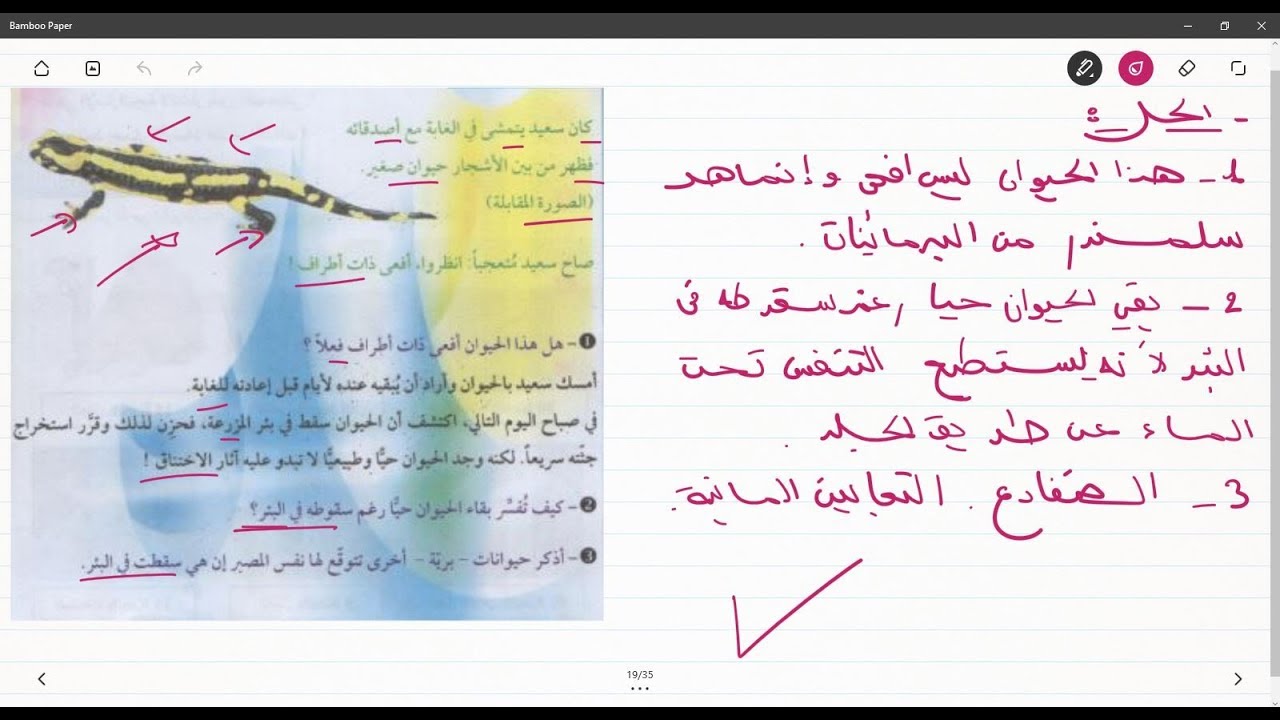 Bamboo Paper
كان سعيد يتمشى في الغابة مع أصدقائه
فظهر من بين الأشجار حيوان صغير.
(الصورة المقابلة)
صاح سعيد مُتعجباً: انظروا، أفعى ذات أطراف !
❶- هل هذا الحيوان أفعى ذات أطراف فعلاً ؟
أمسك سعيد بالحيوان وأراد أن يُبقيه عنده لأيام قبل إعادته للغابة.
في صباح اليوم التالي، اكتشف أن الحيوان سقط في بئر المزرعة، فحزن لذلك وقرَّر استخراج
جثّته سريعاً. لكنه وجد الحيوان حيًّا وطبيعيًّا لا تبدو عليه آثار الاختناق !
❷- كيف تُفسِّر بقاء الحيوان حيًّا رغم سقوطه في البئر؟
❸- أذكر حيوانات - بريّة - أخرى تتوقّع لها نفس المصير إن هي سقطت في البئر.
- الحل :
1- هذا الحيوان ليس افعى وإنما هو
سلمندر من البرمائيات.
2- بقي لحيوان حيا رغم سقوطه في
البئر لأنه يستطيع التنفس تحت
الماء عن طريق لجلد.
3- الضفادع. الثعابين المائية.
19/35